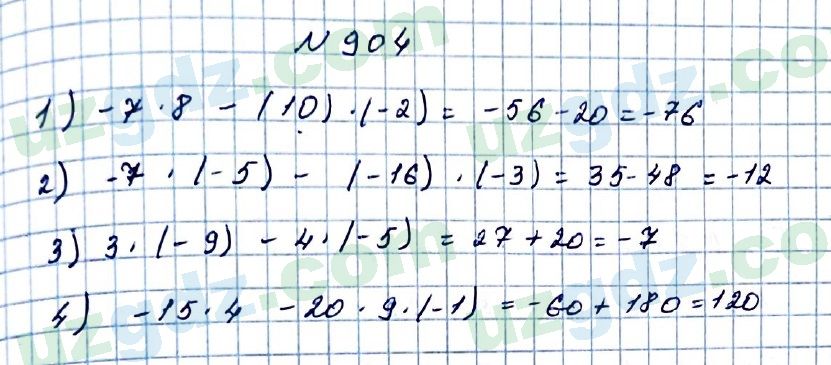 N 904
1) -7 · 8 - (10) · (-2) = -56 - 20 = -76
2) -7 · (-5) - (-16) · (-3) = 35 - 48 = -12
3) 3 · (-9) - 4 · (-5) = 27 + 20 = -7
4) -15 · 4 - 20 · 9 · (-1) = -60 + 180 = 120
uzgdz.com
uzgdz.com
uzgdz.com
uzgdz.com